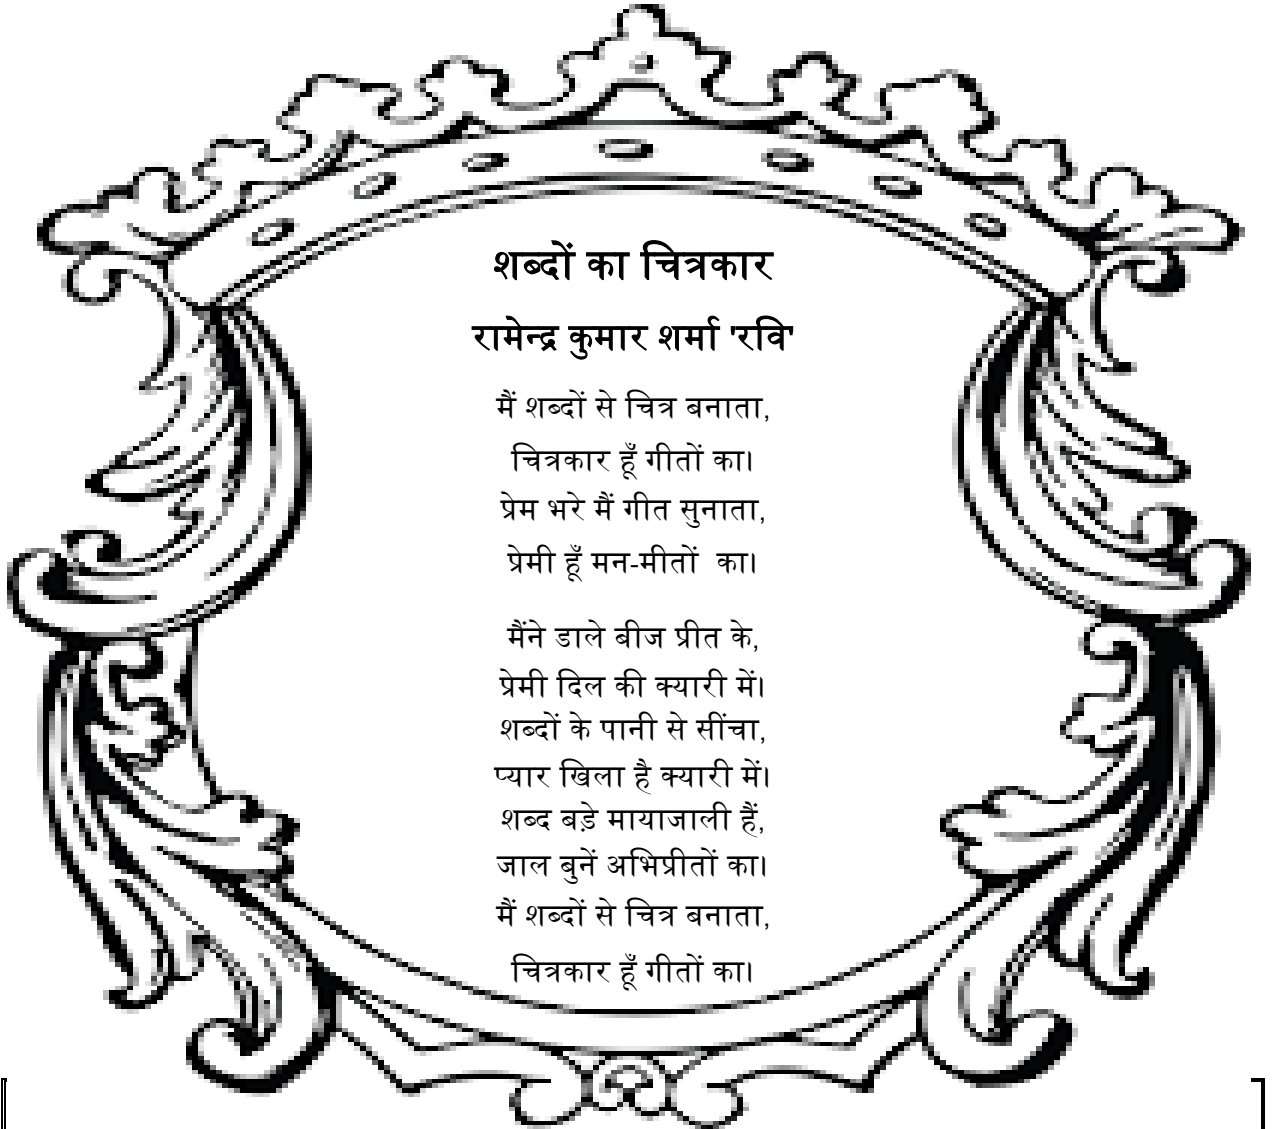 शब्दों का चित्रकार
रामेन्द्र कुमार शर्मा 'रवि'
मैं शब्दों से चित्र बनाता,
चित्रकार हूँ गीतों का।
प्रेम भरे मैं गीत सुनाता,
प्रेमी हूँ मन-मीतों  का।
मैंने डाले बीज प्रीत के,
प्रेमी दिल की क्यारी में।
शब्दों के पानी से सींचा,
प्यार खिला है क्यारी में।
शब्द बड़े मायाजाली हैं,
जाल बुनें अभिप्रीतों का।
मैं शब्दों से चित्र बनाता,
चित्रकार हूँ गीतों का।